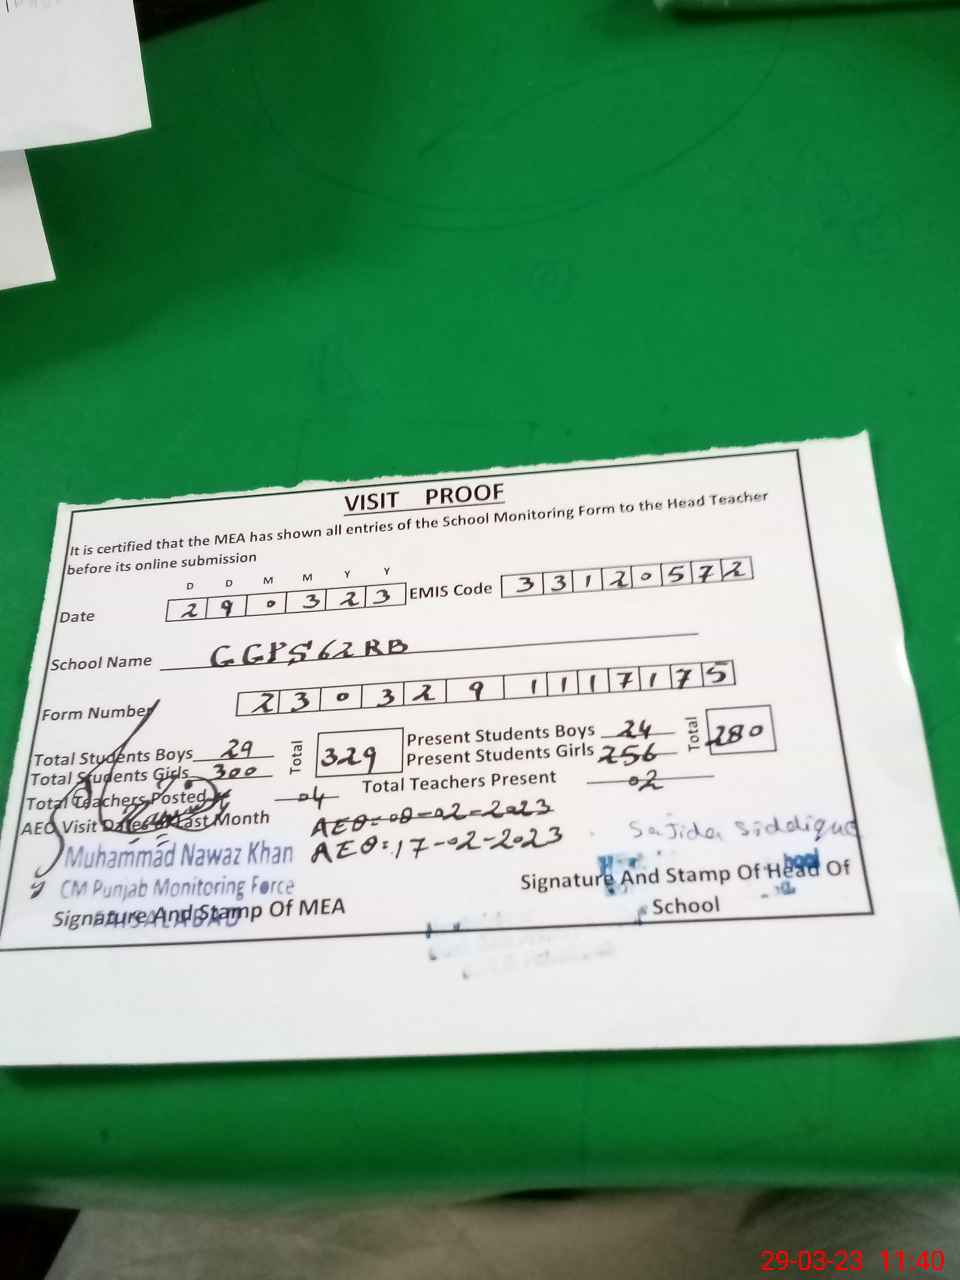 VISIT PROOF
It is certified that the MEA has shown all entries of the School Monitoring Form to the Head Teacher
before its online submission
D D M M Y Y
Date 2 9 0 3 2 3 EMIS Code 3 3 1 2 0 5 7 2
School Name GGPS 62 RB
Form Number 2 3 0 3 2 9 1 1 1 7 1 7 5
Total Students Boys 29 Total 329 Present Students Boys 24 Total 280
Total Students Girls 300 Present Students Girls 256
Total Teachers Posted 04 Total Teachers Present 02
AEO Visit Dates of Last Month AEO: 08-02-2023
AEO: 17-02-2023 Sajida Siddique
Muhammad Nawaz Khan
CM Punjab Monitoring Force
FAISALABAD
Signature And Stamp Of MEA Signature And Stamp Of Head Of
School
29-03-23 11:40